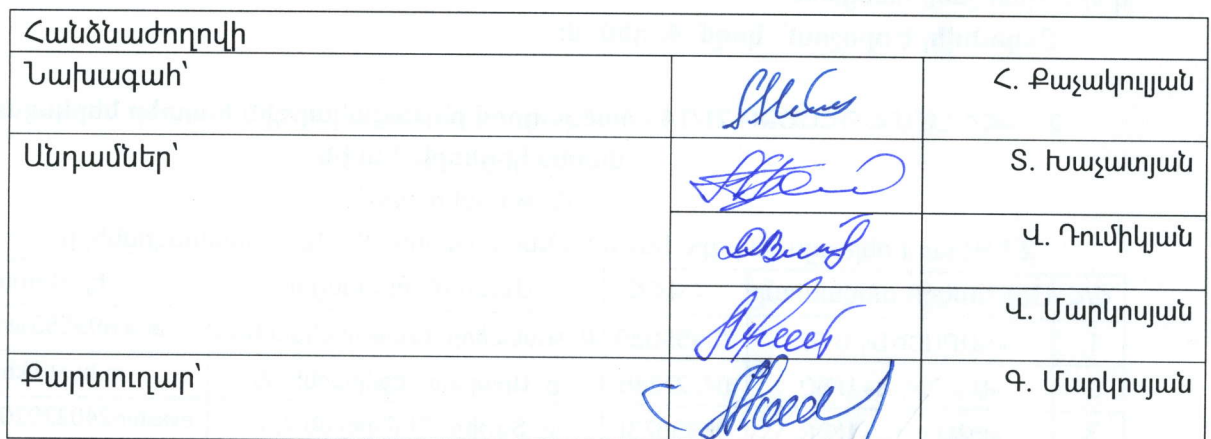 Հանձնաժողովի
Նախագահ՝ Հ. Քաչակուլյան
Անդամներ՝ Տ. Խաչատյան
Վ. Դումիկյան
Վ. Մարկոսյան
Քարտուղար՝ Գ. Մարկոսյան